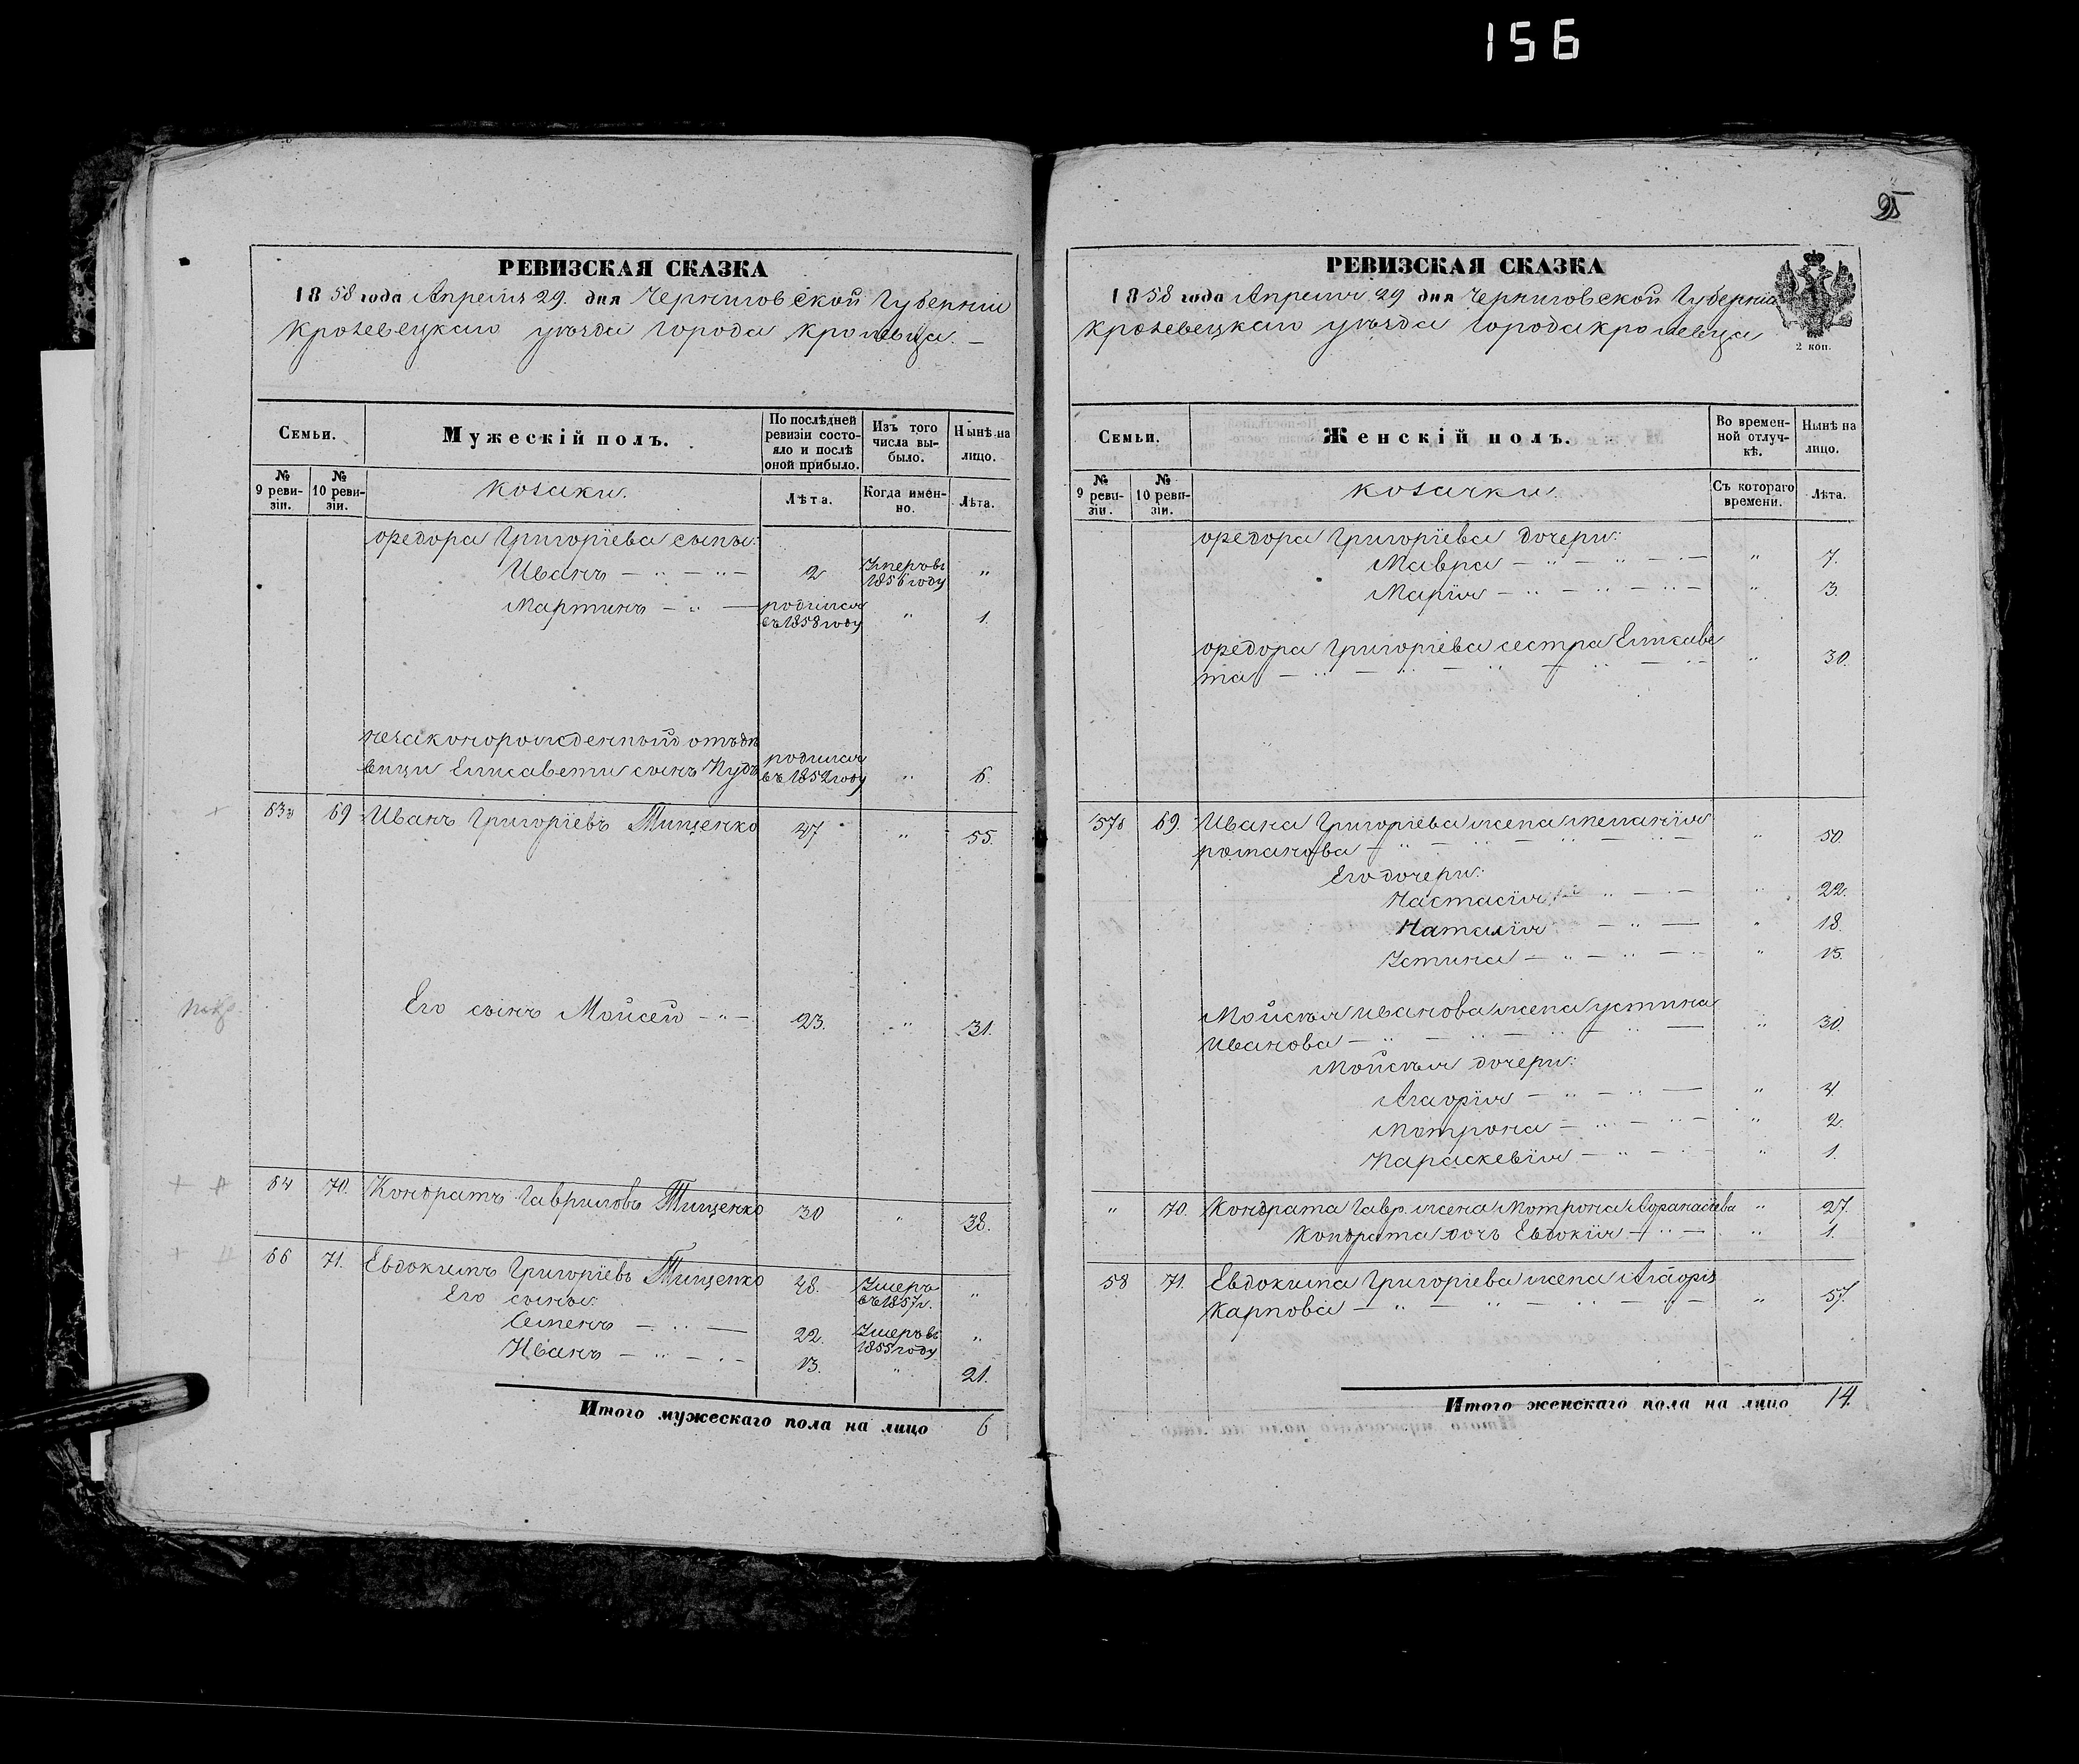 156
РЕВИЗСКАЯ СКАЗКА
1858 года Апреля 29. дня Черниговской Губернии
Кролевецкаго уѣзда города Кролевца.
Семьи.
Мужескій полъ.
По послѣдней ревизіи состояло и послѣ оной прибыло.
Изъ того числа выбыло.
Нынѣ на лицо.
№ 9 ревизіи.
№ 10 ревизіи.
Козаки.
Лѣта.
Когда именно.
Лѣта.
Федора Григоріева сыны:
Иванъ — " — " — 2 Умеръ въ 1856 году "
Мартинъ — " — родился въ 1858 году " 1.
незаконорожденный отъ дѣ
вици Елисавети сынъ родился въ 1852 году " 6.
69 Иванъ Григоріевъ Тищенко 47 " 55.
Его сынъ Мойсей — " — 23. " 31.
64 70. Кондратъ Гавриловъ Тищенко 30 " 38.
66 71. Евдокимъ Григоріевъ Тищенко 48. Умеръ въ 1857 г. "
Его сыны:
Семенъ — " — 22. Умеръ въ 1855 году "
Иванъ — " — " — 13. " 21.
Итого мужескаго пола на лицо 6
РЕВИЗСКАЯ СКАЗКА
1858 года Апреля 29 дня Черниговской Губерніи
Кролевецкаго уѣзда города Кролевца
2 коп.
Семьи.
Женскій полъ.
Во временной отлучкѣ.
Нынѣ на лицо.
№ 9 ревизіи.
№ 10 ревизіи.
Козачки.
Съ котораго времени.
Лѣта.
Федора Григоріева дочери:
Мавра — " — " — " 7.
Марія — " — " — " 3.
Федора Григоріева сестра Елисаве
та — " — " — " — " 30.
69. Ивана Григоріева жена Меланія
романова — " — " — " 50.
Его дочери:
Настасія " — " 22.
Наталія — " — " 18.
Устина — " — " — " 15.
Мойсея Иванова жена устина
Иванова — " — " — " 30.
Мойсея дочери:
Агафія — " — " — " 4.
Мотрона — " — " — " 2.
Параскевія — " — " 1.
" 70. Кондрата Гавр. жена Мотрона Афанасіева " 27.
Кондрата дочь Евдокія — " — " 1.
58 71. Евдокима Григоріева жена Агафія
Карпова — " — " — " — " 57.
Итого женскаго пола на лицо 14.